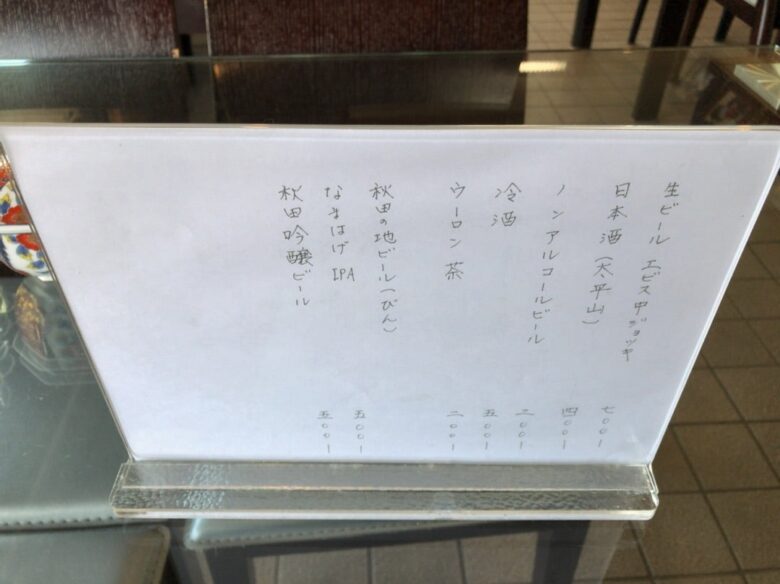 生ビール エビス中ジョッキ 七〇〇ー
日本酒(太平山) 四〇〇ー
ノンアルコールビール 三〇〇ー
冷酒 五〇〇ー
ウーロン茶 二〇〇ー
秋田の地ビール(びん)
なまはげ IPA 五〇〇ー
秋田吟醸ビール 五〇〇ー